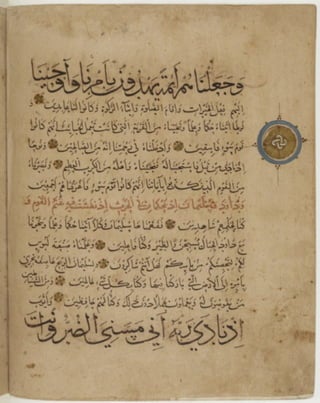 وجعلناهم ائمة يهدون بامرنا واوحينا
اليهم فعل الخيرات واقام الصلوة وايتاء الزكوة وكانوا لنا عابدين
ولوطا اتيناه حكما وعلما ونجيناه من القرية التي كانت تعمل الخبائث انهم كانوا
قوم سوء فاسقين وادخلناه في رحمتنا انه من الصالحين ونوحا
اذ نادى من قبل فاستجبنا له فنجيناه واهله من الكرب العظيم ونصرناه
من القوم الذين كذبوا باياتنا انهم كانوا قوم سوء فاغرقناهم اجمعين
وداود وسليمان اذ يحكمان في الحرث اذ نفشت فيه غنم القوم و
كنا لحكمهم شاهدين ففهمناها سليمان وكلا اتينا حكما وعلما وسخرنا
مع داود الجبال يسبحن والطير وكنا فاعلين وعلمناه صنعة لبوس
لكم لتحصنكم من باسكم فهل انتم شاكرون ولسليمان الريح عاصفة تجري
بامره الى الارض التي باركنا فيها وكنا بكل شيء عالمين ومن الشياطين
من يغوصون له ويعملون عملا دون ذلك وكنا لهم حافظين وايوب
اذ نادى ربه اني مسني الضر وانت